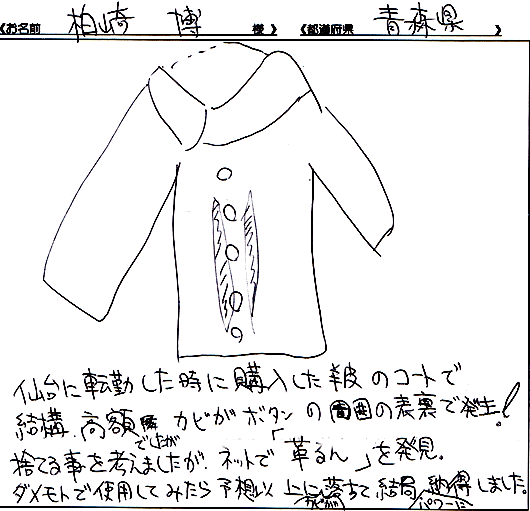 《お名前 柏崎 博 様》 《都道府県 青森県 》
仙台に転勤した時に購入した羊皮のコートで
結構高額でしたが カビがボタンの周囲の表裏で発生!
捨てる事を考えましたが、ネットで「革るん」を発見。
ダメモトで使用してみたら予想以上に落ちて結局 パワーに 納得しました。